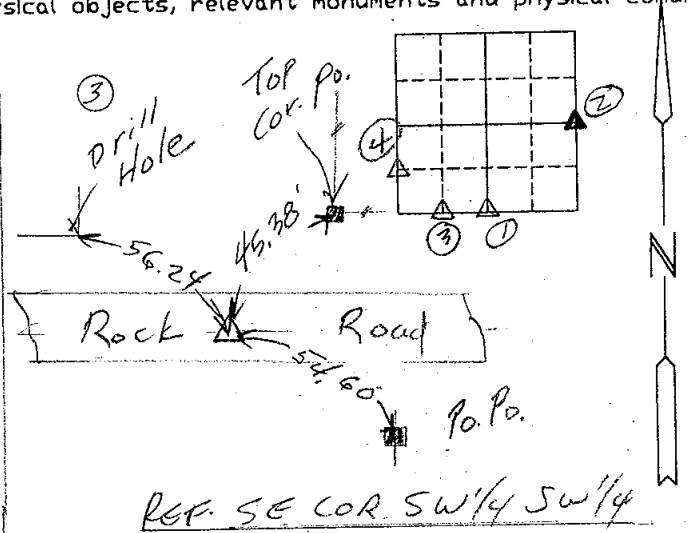 physical objects, relevant monuments and physical
③
Drill
Hole
Top
Cor. Po.
④
②
③
①
N
56.24
45.38'
Rock
Road
54.60
Po. Po.
REF. SE COR SW 1/4 SW 1/4